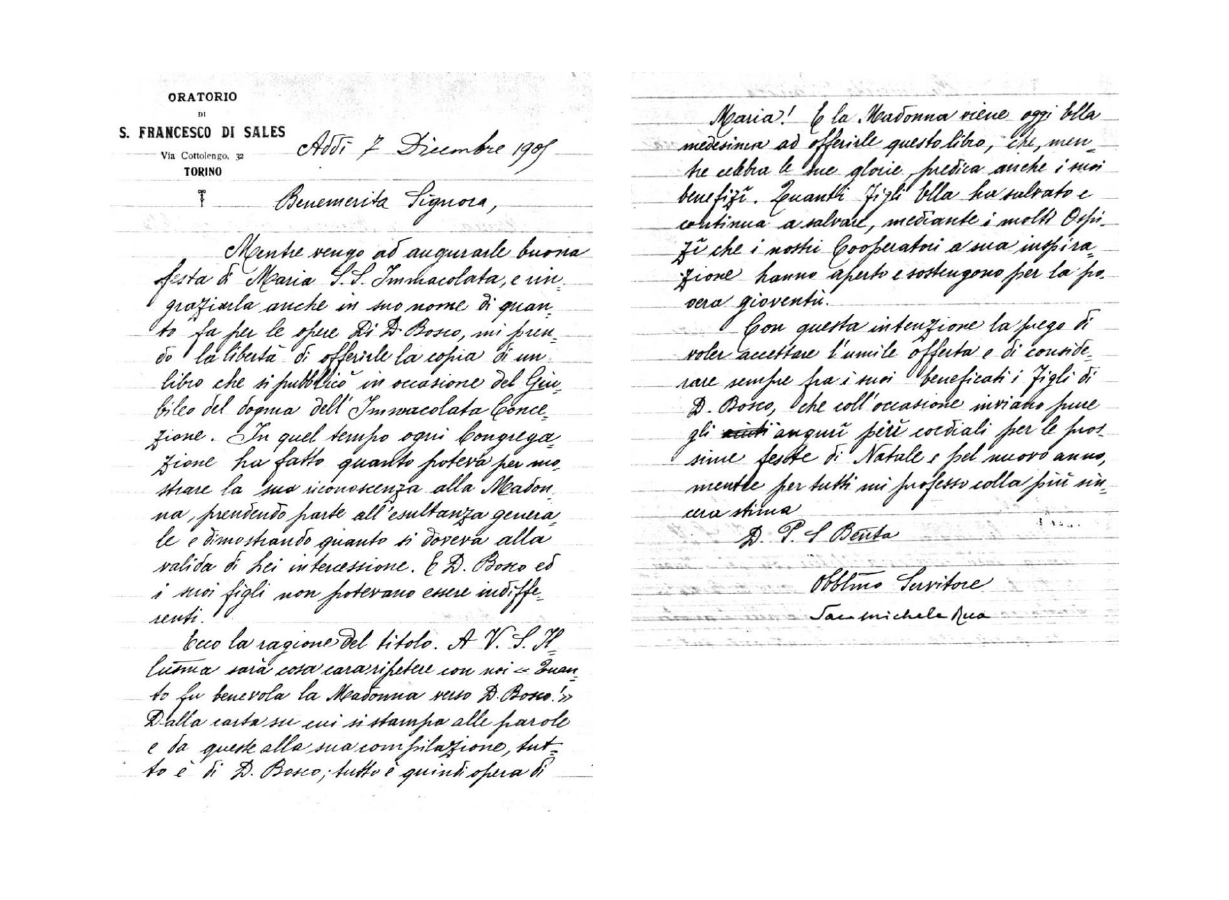 ORATORIO
DI
S. FRANCESCO DI SALES
Via Cottolengo, 32
TORINO
Addì 7 Dicembre 1905
Benemerita Signora,
Mentre vengo ad augurarle buona
festa di Maria S.S. Immacolata, e rin-
graziarla anche in suo nome di quan-
to fa per le opere di D. Bosco, mi pren-
do la libertà di offerirle la copia di un
libro che si pubblicò in occasione del Giu-
bileo del dogma dell'Immacolata Conce-
zione. In quel tempo ogni Congrega-
zione ha fatto quanto poteva per mo-
strare la sua riconoscenza alla Madon-
na, prendendo parte all'esultanza genera-
le e dimostrando quanto si doveva alla
valida di Lei intercessione. E D. Bosco ed
i suoi figli non potevano essere indiffe-
renti.
Ecco la ragione del titolo. A V. S. Il-
lusma sarà cosa cara ripetere con noi « Quan-
to fu benevola la Madonna verso D. Bosco! »
Dalla carta su cui si stampa alle parole
e da queste alla sua compilazione, tut-
to è di D. Bosco; tutto è quindi opera di
Maria! E la Madonna viene oggi Ella
medesima ad offerirle questo libro, che, men-
tre celebra le sue glorie, predica anche i suoi
benefizî. Quanti figli Ella ha salvato e
continua a salvare, mediante i molti Ospi-
zî che i nostri Cooperatori a sua inspira-
zione hanno aperto e sostengono per la po-
vera gioventù.
Con questa intenzione la prego di
voler accettare l'umile offerta e di conside-
rare sempre fra i suoi beneficati i figli di
D. Bosco, che coll'occasione inviano pure
gli augurî più cordiali per le pros-
sime feste di Natale e pel nuovo anno,
mentre per tutti mi professo colla più sin-
cera stima
D. V. S. Benta
Obblmo Servitore
Sac. Michele Rua